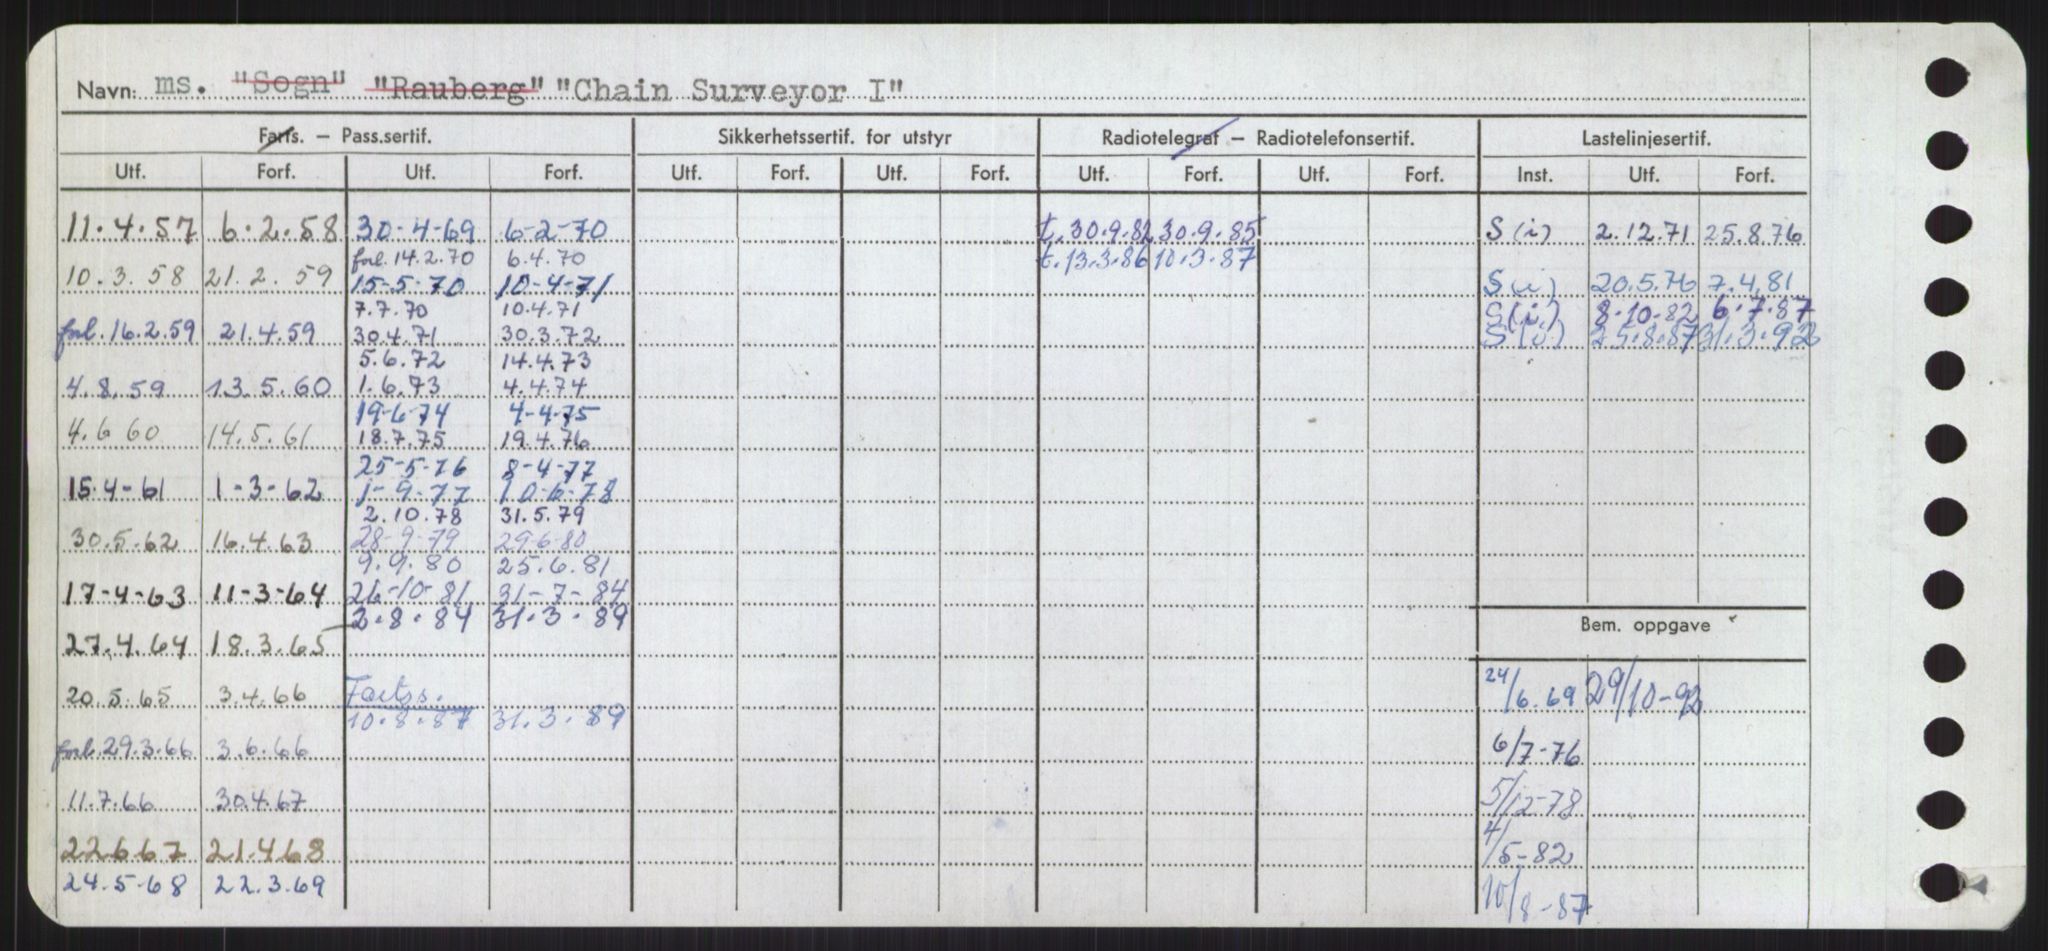 Navn: ms. "Sogn" "Rauberg" "Chain Surveyor I"
Farts. – Pass.sertif. Sikkerhetssertif. for utstyr Radiotelegraf – Radiotelefonsertif. Lastelinjesertif.
Utf. Forf. Utf. Forf. Utf. Forf. Utf. Forf. Utf. Forf. Utf. Forf. Inst. Utf. Forf.
11.4.57 6.2.58 30-4-69 6-2-70 t. 30.9.82 30.9.85 S (i) 2.12.71 25.8.76
forl. 14.2.70 6.4.70 t. 13.3.86 10.3.87
10.3.58 21.2.59 15-5-70 10-4-71 S (i) 20.5.76 7.4.81
7.7.70 10.4.71 S (i) 8.10.82 6.7.87
forl. 16.2.59 21.4.59 30.4.71 30.3.72 S (i) 25.8.87 31.3.92
5.6.72 14.4.73
4.8.59 13.5.60 1.6.73 4.4.74
19-6-74 4-4-75
4.6 60 14.5.61 18.7.75 19.4.76
25-5-76 8-4-77
15.4-61 1-3-62 1-9-77 10-6-78
2.10.78 31.5.79
30.5.62 16.4.63 28-9-79 29-6-80
9.9.80 25.6.81
17-4-63 11-3-64 26-10-81 31-7-84
2.8.84 31.3.89
27.4.64 18.3.65
Bem. oppgave
20.5.65 3.4.66 Fartss. 24/6.69 29/10-92
10.8.87 31.3.89
forl. 29.3.66 3.6.66 6/7-76
11.7.66 30.4.67 5/12-78
22667 21.468 4/5-82
24.5-68 22.3.69 10/8-87